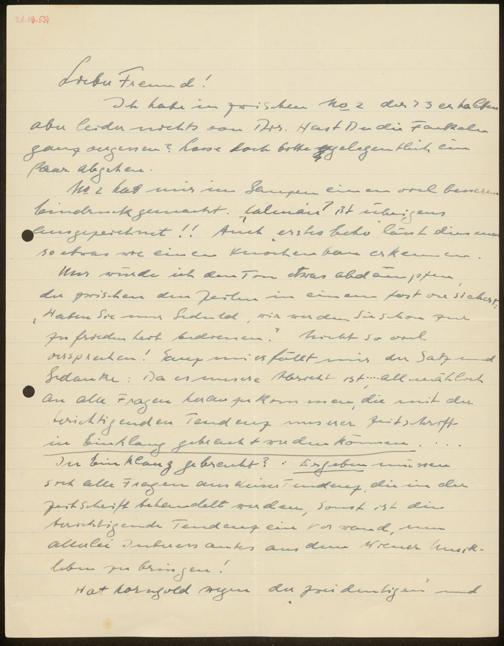 Lieber Freund!
Ich habe inzwischen No 2 der 23 erhalten
aber leider nichts von Drs. Hast Du die Fackeln
ganz vergessen? Lasse doch bitte gelegentlich ein
Paar abgehen.
No 2 hat mir im Ganzen einen viel besseren
Eindruck gemacht. ist übrigens
ausgezeichnet!! Auch "erstes Echo" lässt
so etwas wie einen Knochenbau erkennen.
Nur würde ich den Ton etwas abdämpfen,
der zwischen den Zeilen in einem fort versichert:
"Haben Sie nur Geduld, wir werden Sie schon zur
Zufriedenheit bedienen." Nicht so viel
versprechen! Ganz missfällt mir der Satz und
Gedanke: Da es unsere Absicht ist... allmählich
an alle Fragen heranzukommen, die mit der
berichtigenden Tendenz unserer Zeitschrift
in Einklang gebracht werden können....
In Einklang gebracht? Ergeben müssen
sich alle Fragen aus dieser Tendenz, die in der
Zeitschrift behandelt werden, sonst ist die
berichtigende Tendenz ein Vorwand, um
allerlei Interessantes aus dem Wiener Musik-
leben zu bringen!
Hat Korngold wegen der und